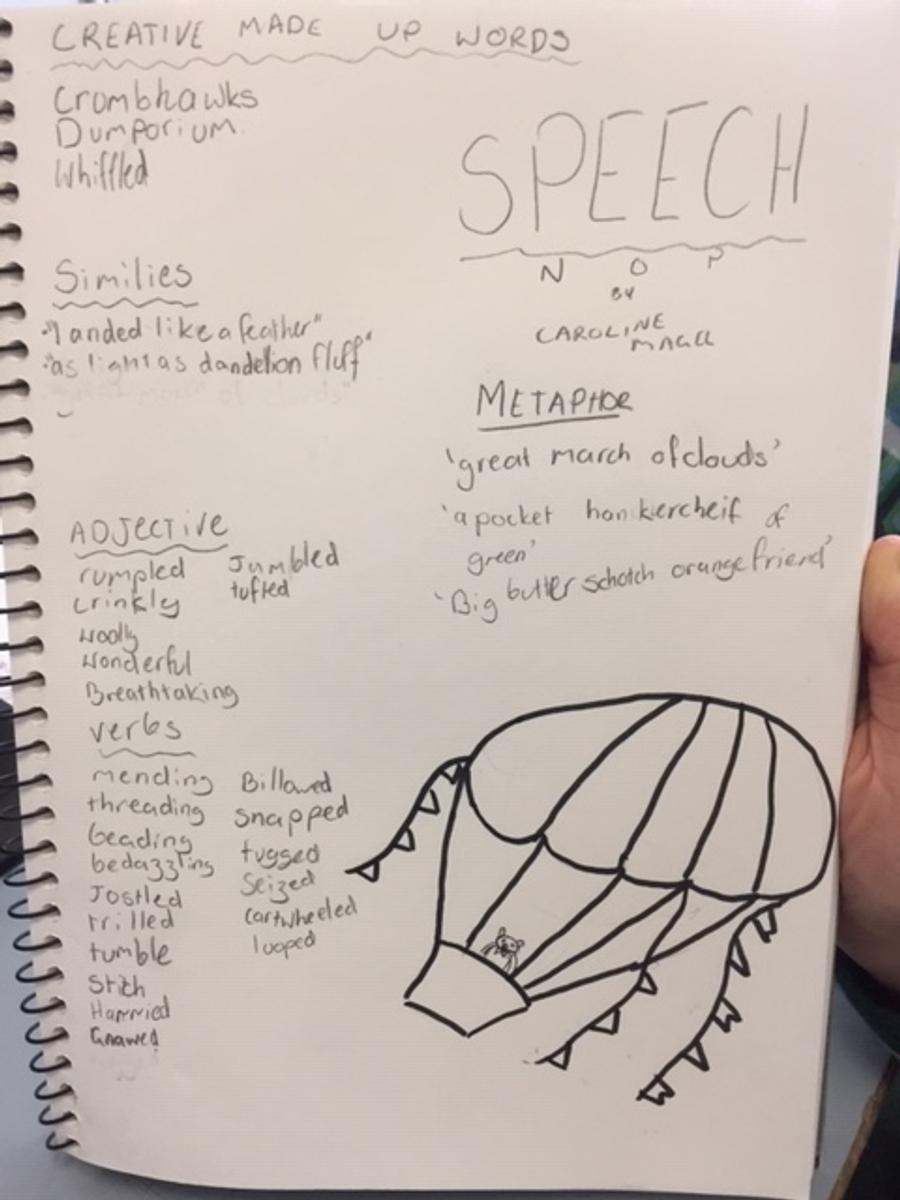 CREATIVE MADE UP WORDS
Crombhawks
Dumporium.
Whiffled
SPEECH
N O P
BY
CAROLINE
MAGEE
Similies
"landed like a feather"
"as light as dandelion fluff"
METAPHOR
'great march of clouds'
'a pocket hankiercheif of
green'
'Big butterschotch orange friend'
ADJECTIVE
rumpled Jumbled
crinkly tufted
woolly
wonderful
Breathtaking
verbs
mending Billowed
threading snapped
beading tugged
bedazzling Seized
Jostled cartwheeled
trilled looped
tumble
Stitch
Harried
Gnawed